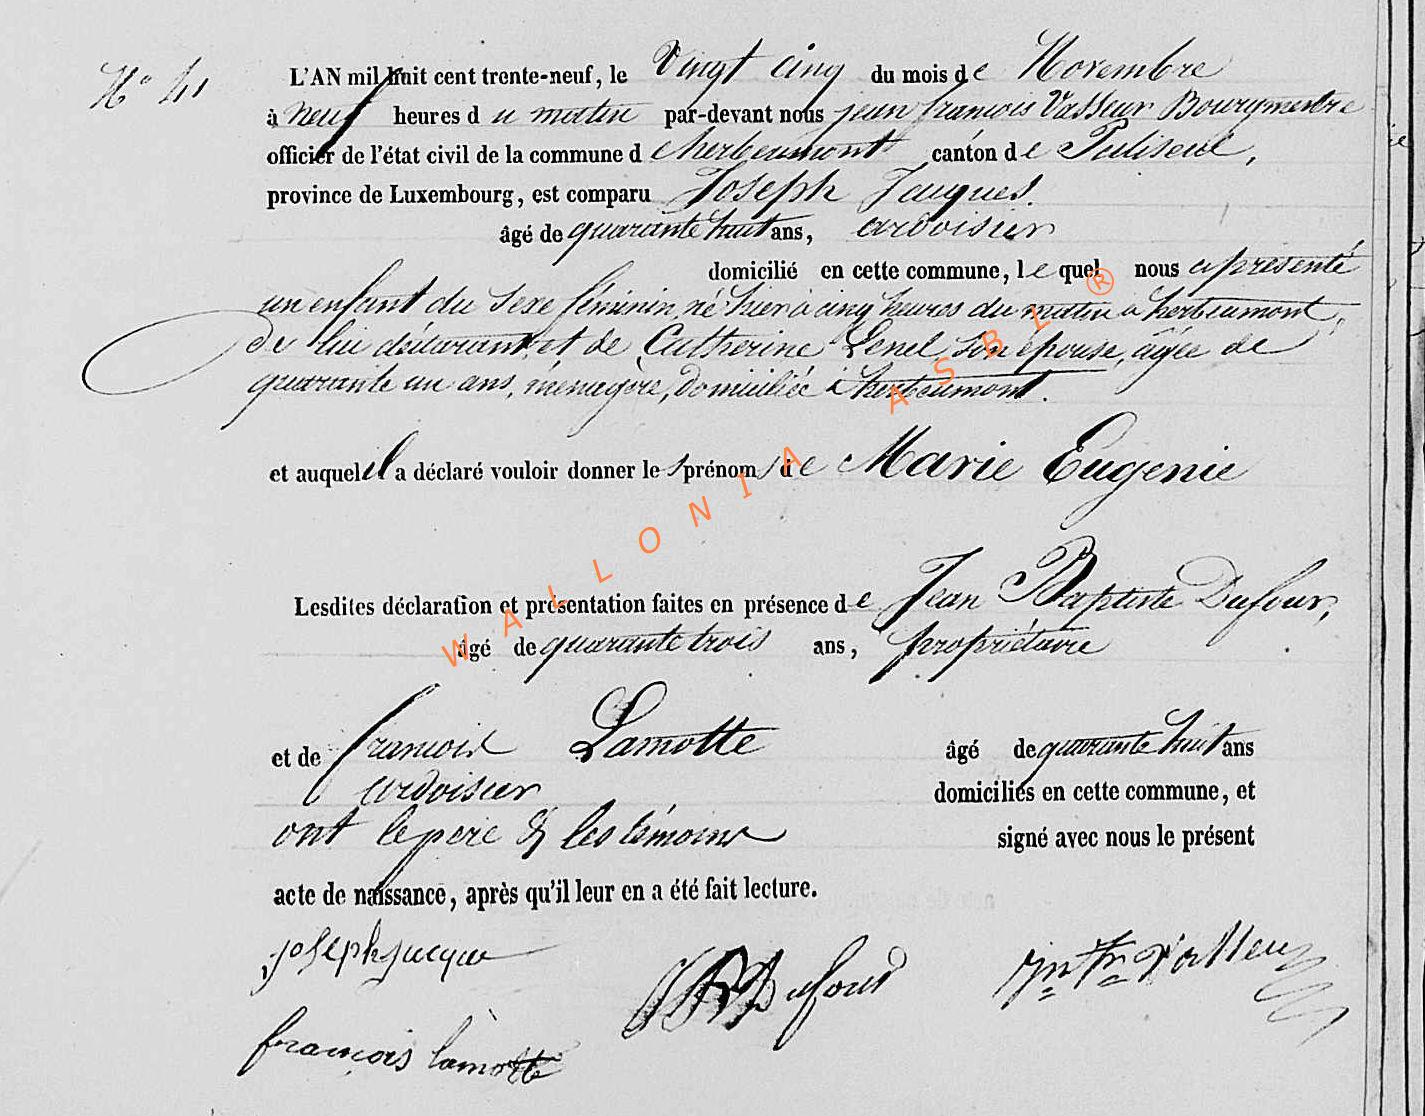 N° 41
L'AN mil huit cent trente-neuf, le Vingt cinq du mois de Novembre
à neuf heures du matin par-devant nous jean françois Vasseur Bourgmestre
officier de l'état civil de la commune d'herbeumont canton de Paliseul,
province de Luxembourg, est comparu Joseph Jacques.
âgé de quarante huit ans, ardoisier
domicilié en cette commune, lequel nous a présenté
un enfant du sexe féminin, né hier à cinq heures du matin à herbeumont,
de lui déclarant, et de Catherine Lenel, son épouse, âgée de
quarante un ans, ménagère, domiciliée à herbeumont.
et auquel il a déclaré vouloir donner les prénoms de Marie Eugenie
Lesdites déclaration et présentation faites en présence de Jean Baptiste Dufour,
âgé de quarante trois ans, propriétaire
et de françois Lamotte âgé de quarante huit ans
ardoisier domiciliés en cette commune, et
ont le père & les témoins signé avec nous le présent
acte de naissance, après qu'il leur en a été fait lecture.
joseph jacque JB Dufour jn fr Vasseur
françois lamotte
WALLONIA ASBL ®